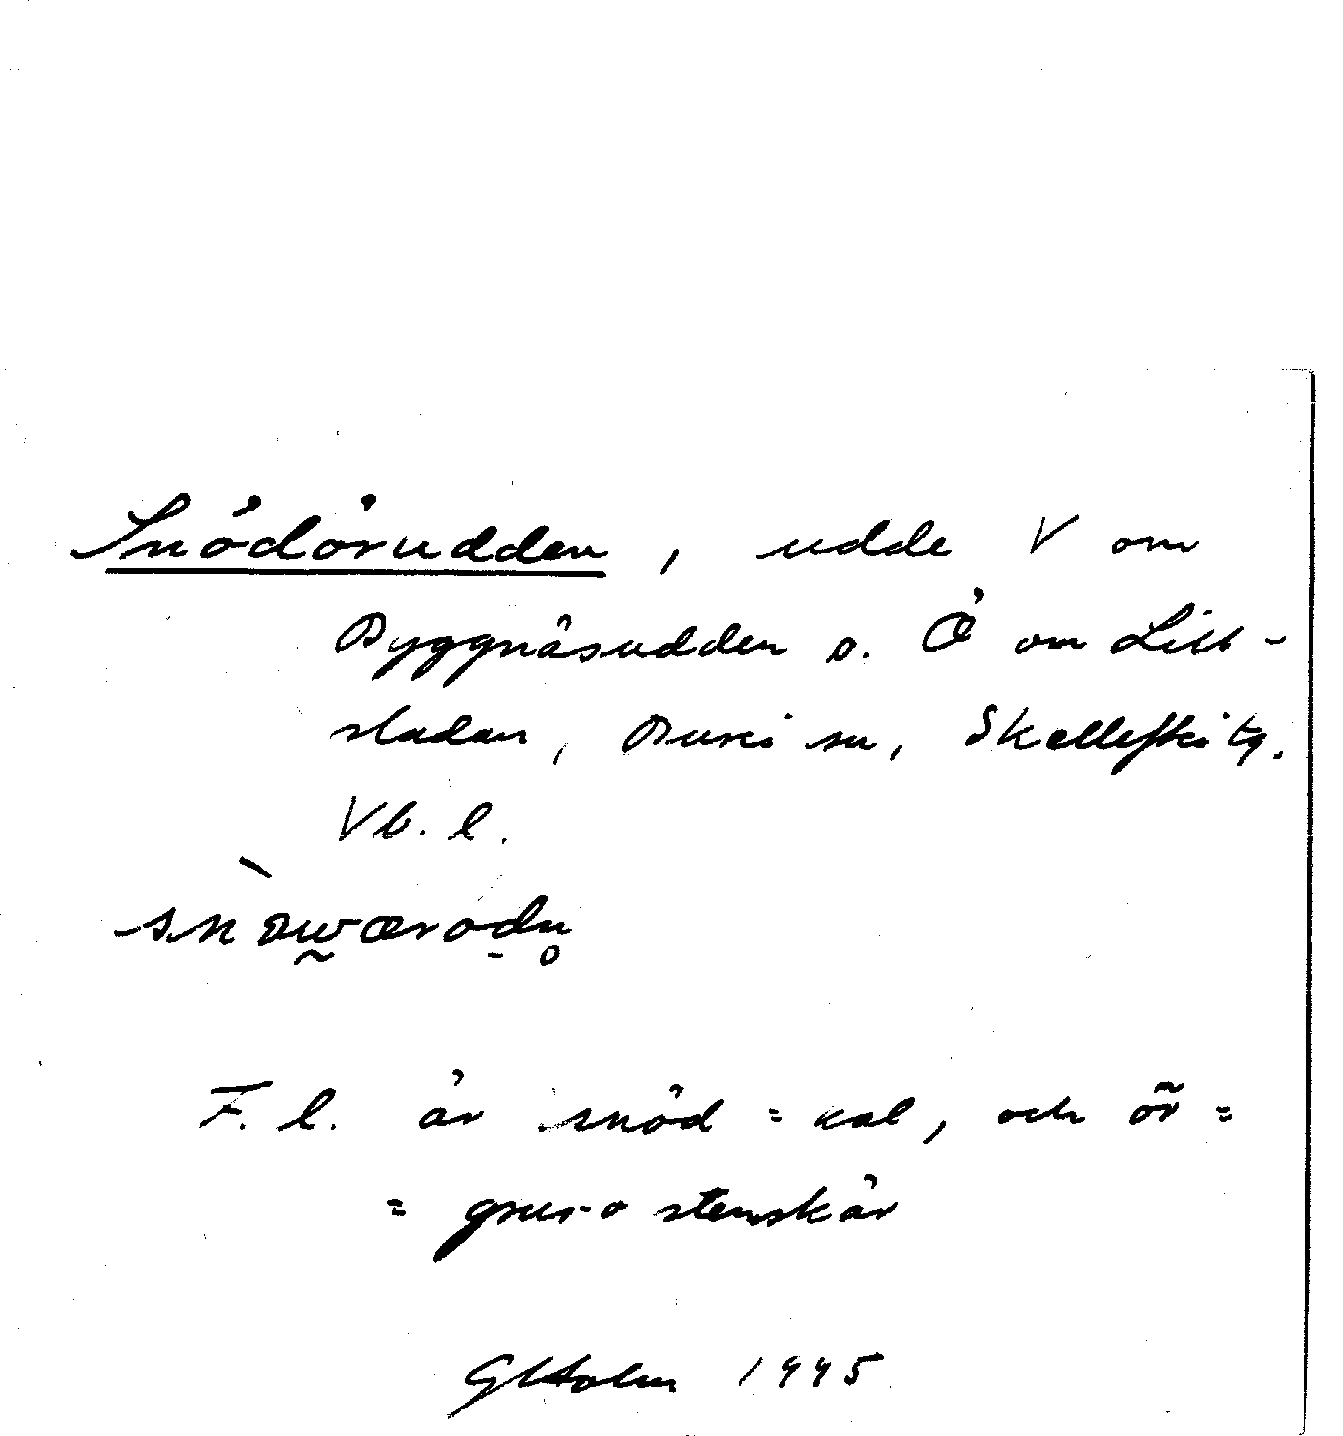 Snödörudden, udde V om
Byggnäsudden o. Ö om Lill-
sladan, Bureå sn, Skellefteå tg.
Vb. l.
F. l. är snöd = kal, och ör =
= grus- o stenskär
GHolm 1945